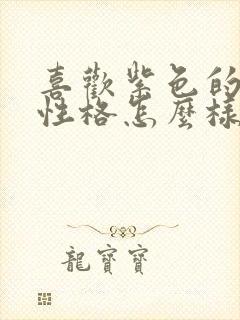 喜歡紫色的
性格怎麼樣
龍寶寶